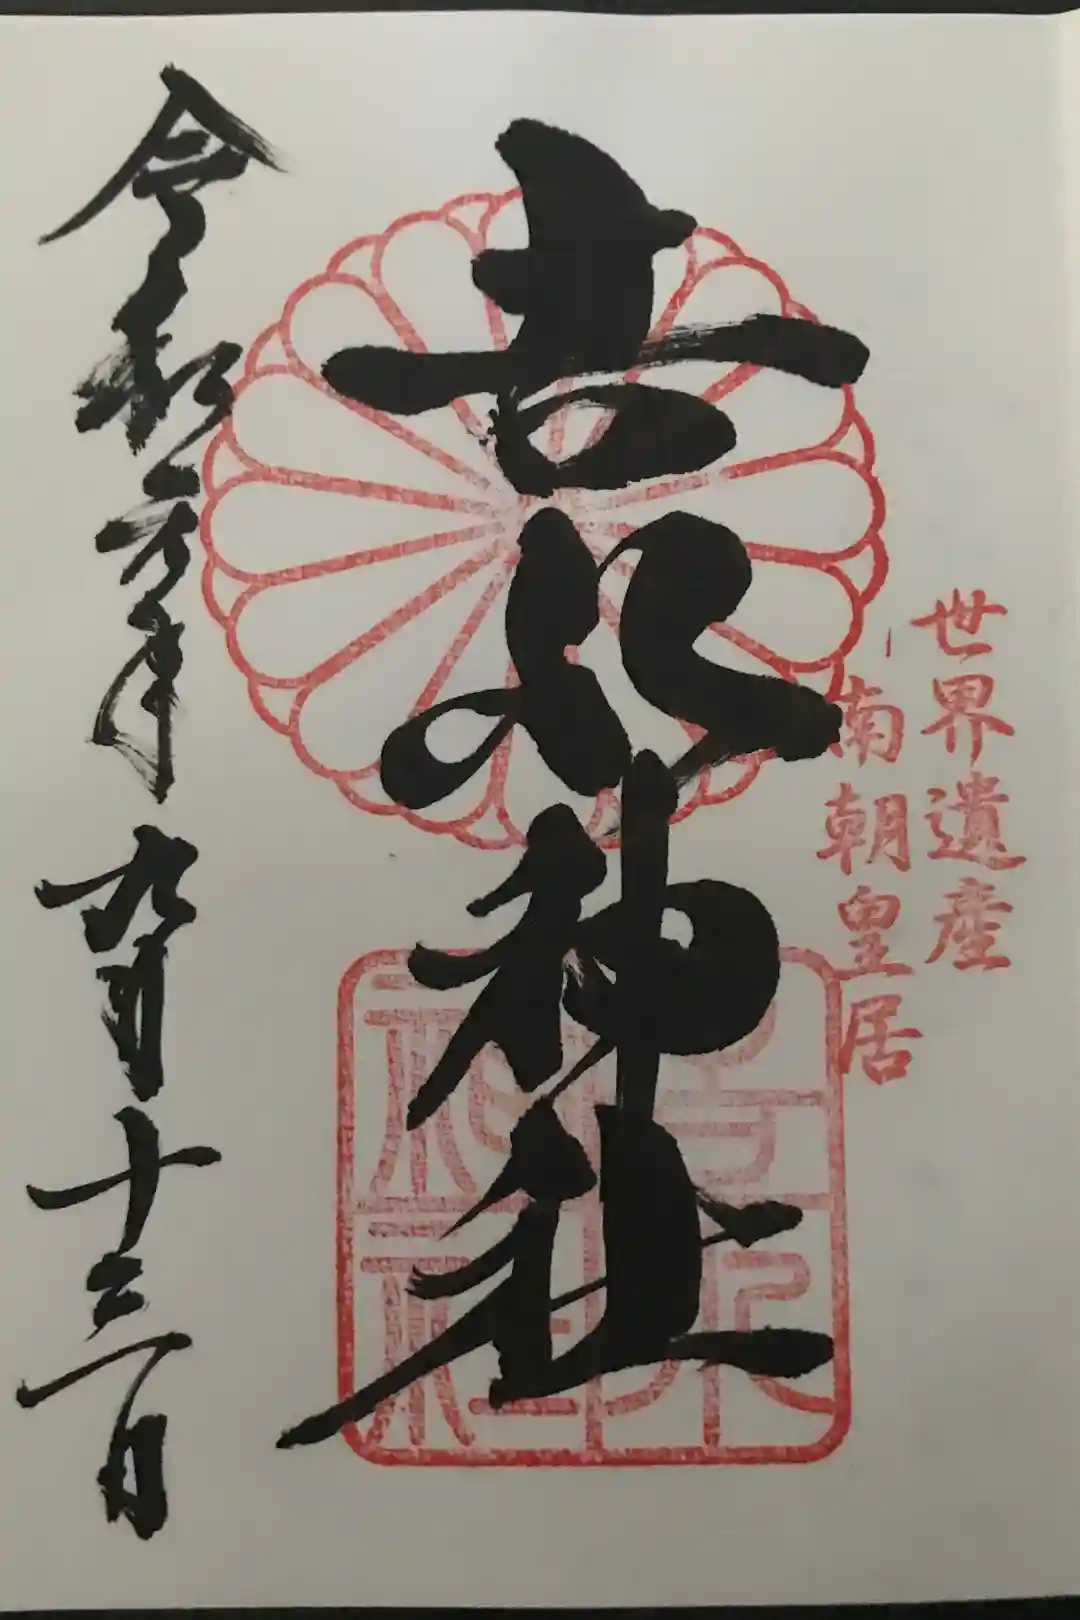 世界遺産
南朝皇居
吉水神社
令和元年九月十三日
吉水
神社